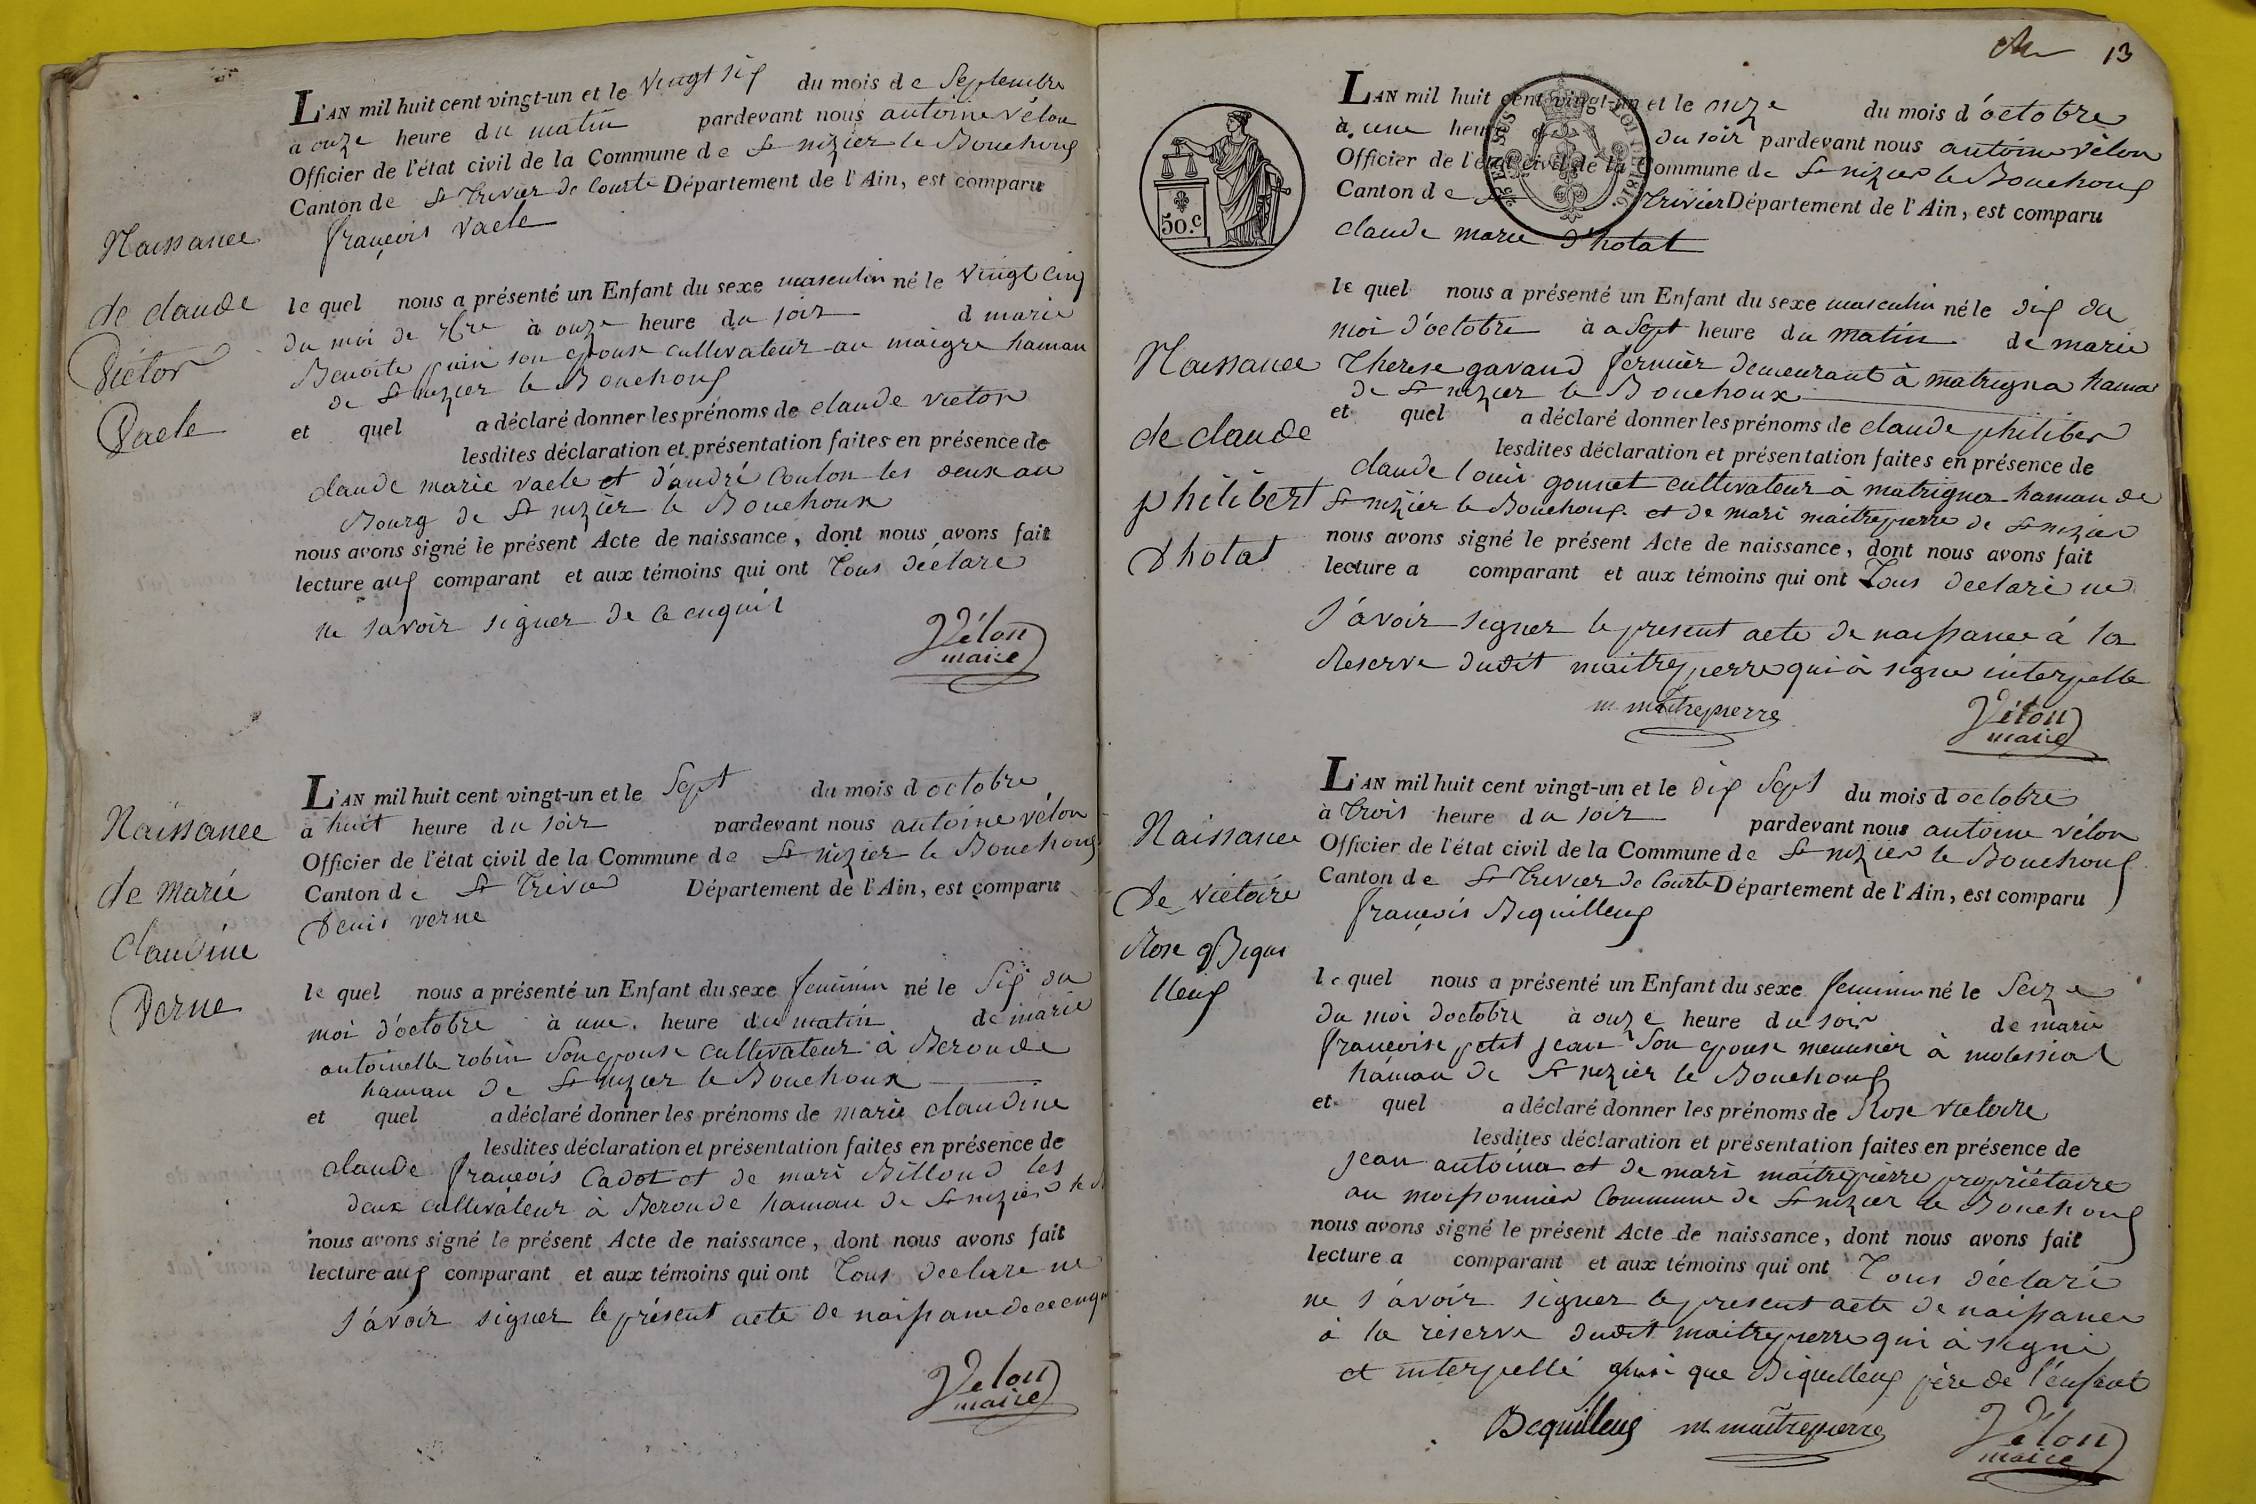 L'AN mil huit cent vingt-un et le vingt six du mois de Septembre
a onze heure du matin pardevant nous antoine vélon
Officier de l'état civil de la Commune de St nizier le Bouchoux
Canton de St Trivier de Courte Département de l'Ain, est comparu
françois vacle
Naissance
de claude
victor
Vacle
le quel nous a présenté un Enfant du sexe masculin né le vingt cinq
du moi de 7bre à onze heure du soir d marie
Benoite puin son epouse cultivateur au maigre hamau
de St nizier le Bouchoux
et quel a déclaré donner les prénoms de claude victor
lesdites déclaration et présentation faites en présence de
claude marie vacle et d'andré Coulon les deux au
Bourg de St nizier le Bouchoux
nous avons signé le présent Acte de naissance, dont nous avons fait
lecture aux comparant et aux témoins qui ont Tous déclaré
ne savoir signer de ce enquir
Vélon
maire
L'AN mil huit cent vingt-un et le Sept du mois d octobre
a huit heure du soir pardevant nous antoine vélon
Officier de l'état civil de la Commune de St nizier le Bouchoux
Canton de St Trivier Département de l'Ain, est comparu
Denis verne
Naissance
de marie
claudine
Verne
le quel nous a présenté un Enfant du sexe feminin né le Six du
moi d'octobre à une heure du matin de marie
antoinelle robin Son epouse cultivateur à Beronde
hamau de St nizier le Bouchoux
et quel a déclaré donner les prénoms de marie claudine
lesdites déclaration et présentation faites en présence de
claude françois Cadot et de mari Billoud les
deux cultivateur à Beronde hamau de St nizier le
nous avons signé le présent Acte de naissance, dont nous avons fait
lecture aux comparant et aux témoins qui ont Tous declare ne
s'avoir signer le présent acte de naissance de ce
Vélon
maire
13
50.c
L'AN mil huit cent vingt-un et le onze du mois d'octobre
à une heure du soir pardevant nous antoine vélon
Officier de l'état civil de la Commune de St nizier le Bouchoux
Canton de Trivier Département de l'Ain, est comparu
claude marie d'hotal
LOI DE 1816.
Naissance
de claude
philibert
Dhotal
le quel nous a présenté un Enfant du sexe masculin né le dix du
moi d'octobre à a Sept heure du matin de marie
Therese gavand fermier demeurant à matrigna hama
de St nizier le Bouchoux
et quel a déclaré donner les prénoms de claude philiber
lesdites déclaration et présentation faites en présence de
claude louis gonnet cultivateur à matrigna hamau de
St nizier le Bouchoux et de mari maitrepierre de St nizier
nous avons signé le présent Acte de naissance, dont nous avons fait
lecture a comparant et aux témoins qui ont Tous declaré ne
s'avoir signer le present acte de naissance à la
Reserve dudit maitrepierre qui à signe interpelle
m. maitrepierre
Vélon
maire
L'AN mil huit cent vingt-un et le dix Sept du mois d octobre
à trois heure du soir pardevant nous antoine vélon
Officier de l'état civil de la Commune de St nizier le Bouchoux
Canton de St Trivier de Courte Département de l'Ain, est comparu
françois Bequilleux
Naissance
De victoire
Rose Bequi
lleux
le quel nous a présenté un Enfant du sexe feminin né le Seize
du moi doctobre à onze heure du soir de marie
françoise petit jean Son epouse meunier à molessial
hamau de St nizier le Bouchoux
et quel a déclaré donner les prénoms de Rose victoire
lesdites déclaration et présentation faites en présence de
jean antoina et de mari maitrepierre propriétaire
au moissonnier Commune de St nizier le Bouchoux
nous avons signé le présent Acte de naissance, dont nous avons fait
lecture a comparant et aux témoins qui ont Tous déclaré
ne s'avoir signer le present acte de naissance
à la réserve dudit maitrepierre qui à signé
et interpellé que Bequilleux père de l'enfant
Bequilleux m. maitrepierre
Vélon
maire